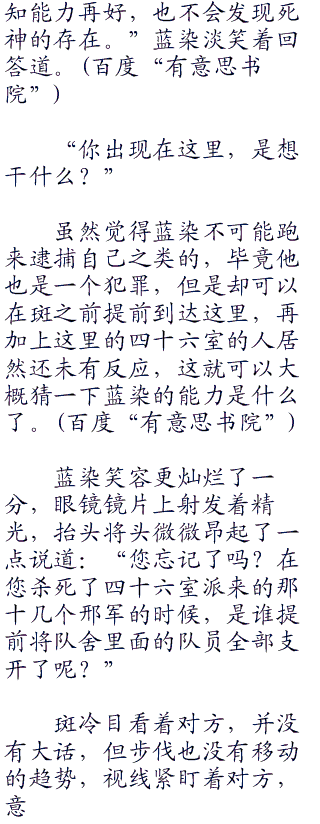 知能力再好，也不会发现死
神的存在。”蓝染淡笑着回
答道。(百度“有意思书
院”)
“你出现在这里，是想
干什么？”
虽然觉得蓝染不可能跑
来逮捕自己之类的，毕竟他
也是一个犯罪，但是却可以
在斑之前提前到达这里，再
加上这里的四十六室的人居
然还未有反应，这就可以大
概猜一下蓝染的能力是什么
了。(百度“有意思书院”)
蓝染笑容更灿烂了一
分，眼镜镜片上射发着精
光，抬头将头微微昂起了一
点说道：“您忘记了吗？在
您杀死了四十六室派来的那
十几个邢军的时候，是谁提
前将队舍里面的队员全部支
开了呢？”
斑冷目看着对方，并没
有大话，但步伐也没有移动
的趋势，视线紧盯着对方，
意